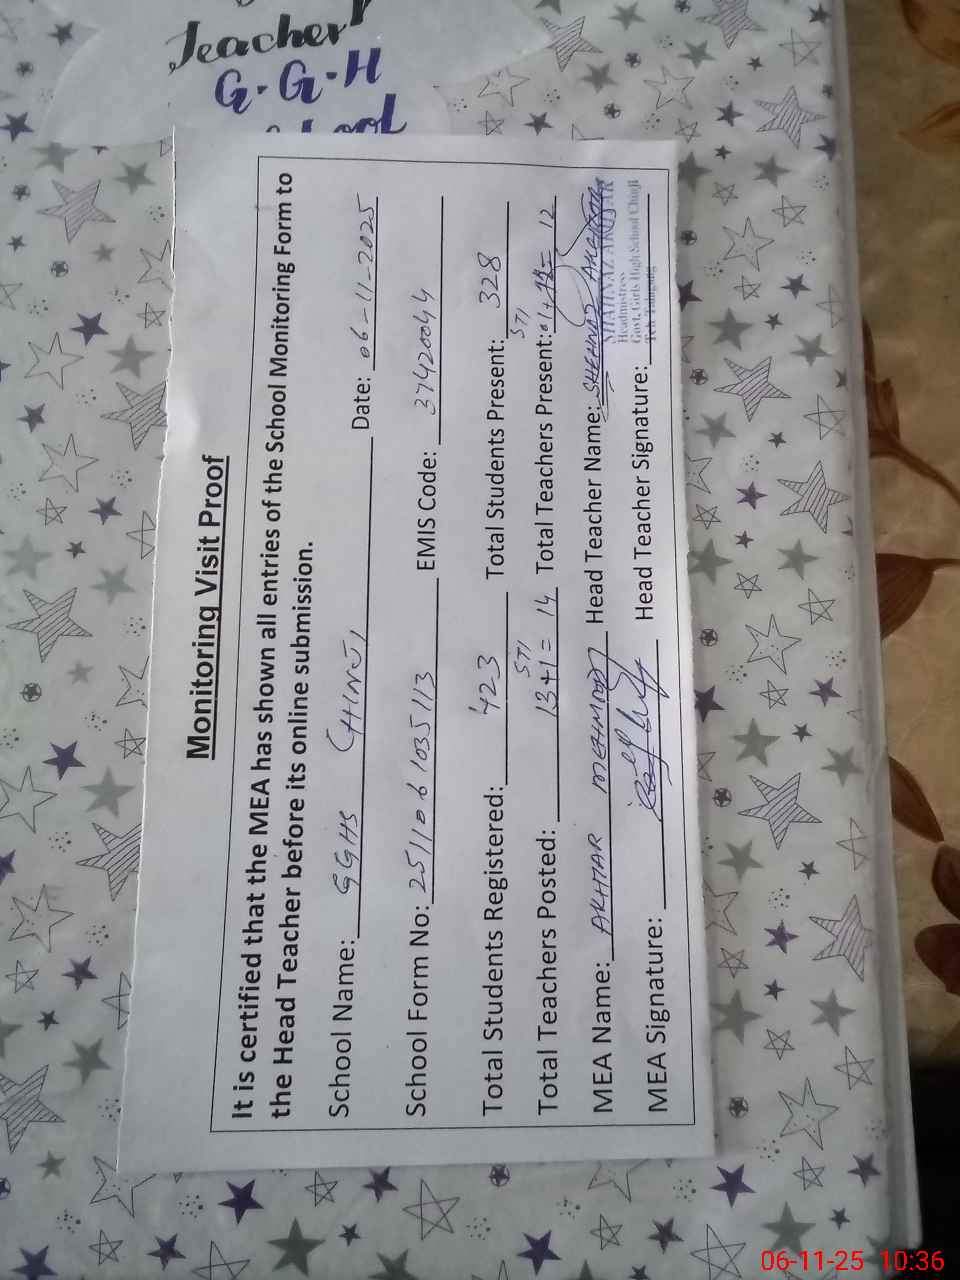 Teacher
G.G.H
School
Monitoring Visit Proof
It is certified that the MEA has shown all entries of the School Monitoring Form to
the Head Teacher before its online submission.
School Name: GGHS CHINJI Date: 06-11-2025
School Form No: 251106 1035113 EMIS Code: 37420044
Total Students Registered: 423 Total Students Present: 328
STI STI
Total Teachers Posted: 13+1=14 Total Teachers Present: 01+ = 12
MEA Name: AKHTAR MEHMOOD Head Teacher Name: SHEHNAZ AKHTAR
SHAHNAZ AKHTAR
Headmistress
Govt. Girls High School Chinji
Teh. Talagang
MEA Signature: Head Teacher Signature:
06-11-25 10:36